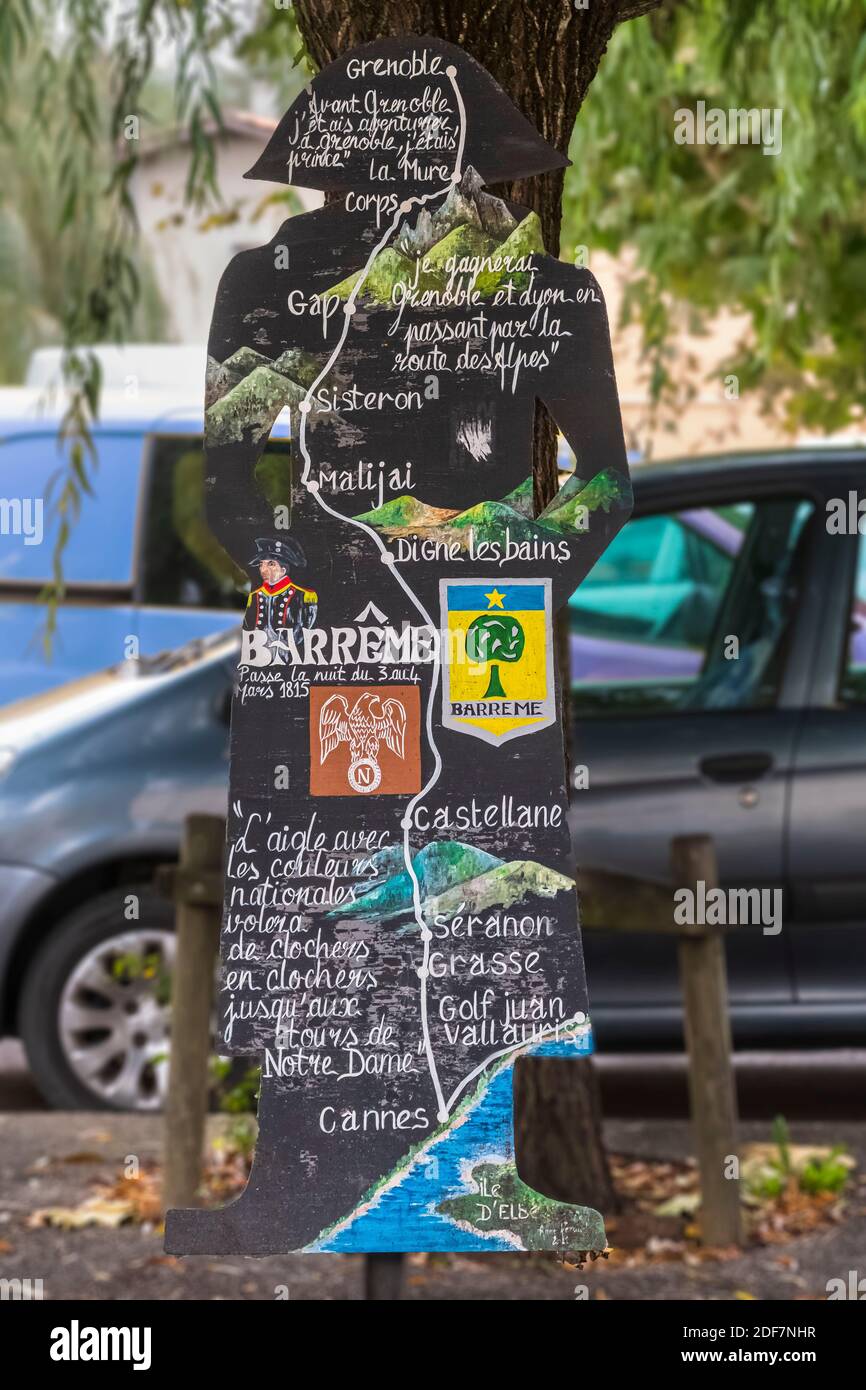 Grenoble
"Avant Grenoble
j'étais aventurier
à grenoble, j'étais
prince"
la Mure
corps
"je gagnerai
Grenoble et dyon en
passant par la
route des Alpes"
Gap
Sisteron
Malijai
Digne les bains
BARRÊME
Passe la nuit du 3 au 4
Mars 1815
BARREME
N
Castellane
"L'aigle avec
les couleurs
nationales
volera
de clochers
en clochers
jusqu'aux
tours de
Notre Dame"
Séranon
Grasse
Golf juan
Vallauris
Cannes
île
D'Elbe
alamy
Image ID: 2DF7NHR
www.alamy.com